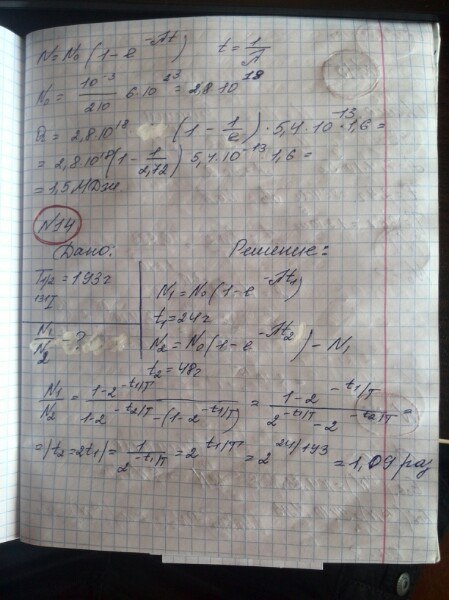 N = N₀ (1 - e^-λt)   t = 1/λ
N₀ = 10^-3/210 · 6·10^23 = 2,8·10^18
= 2,8·10^18 (1 - 1/e) · 5,4·10^-13 · 1,6 =
= 2,8·10^18 (1 - 1/2,72) 5,4·10^-13 1,6 =
= 1,5 МДж
N14
Дано:   Решение:
T1/2 = 193г
131I
N1/N2 - ?
N1 = N0 (1 - e^-λt1)
t1 = 24г
N2 = N0 (1 - e^-λt2) - N1
t2 = 48г
N1/N2 = 1-2^-t1/T / 1-2^-t2/T - (1-2^-t1/T) = 1-2^-t1/T / 2^-t1/T - 2^-t2/T =
= |t2 = 2t1| = 1/2^-t1/T = 2^t1/T = 2^24/193 = 1,09 раз